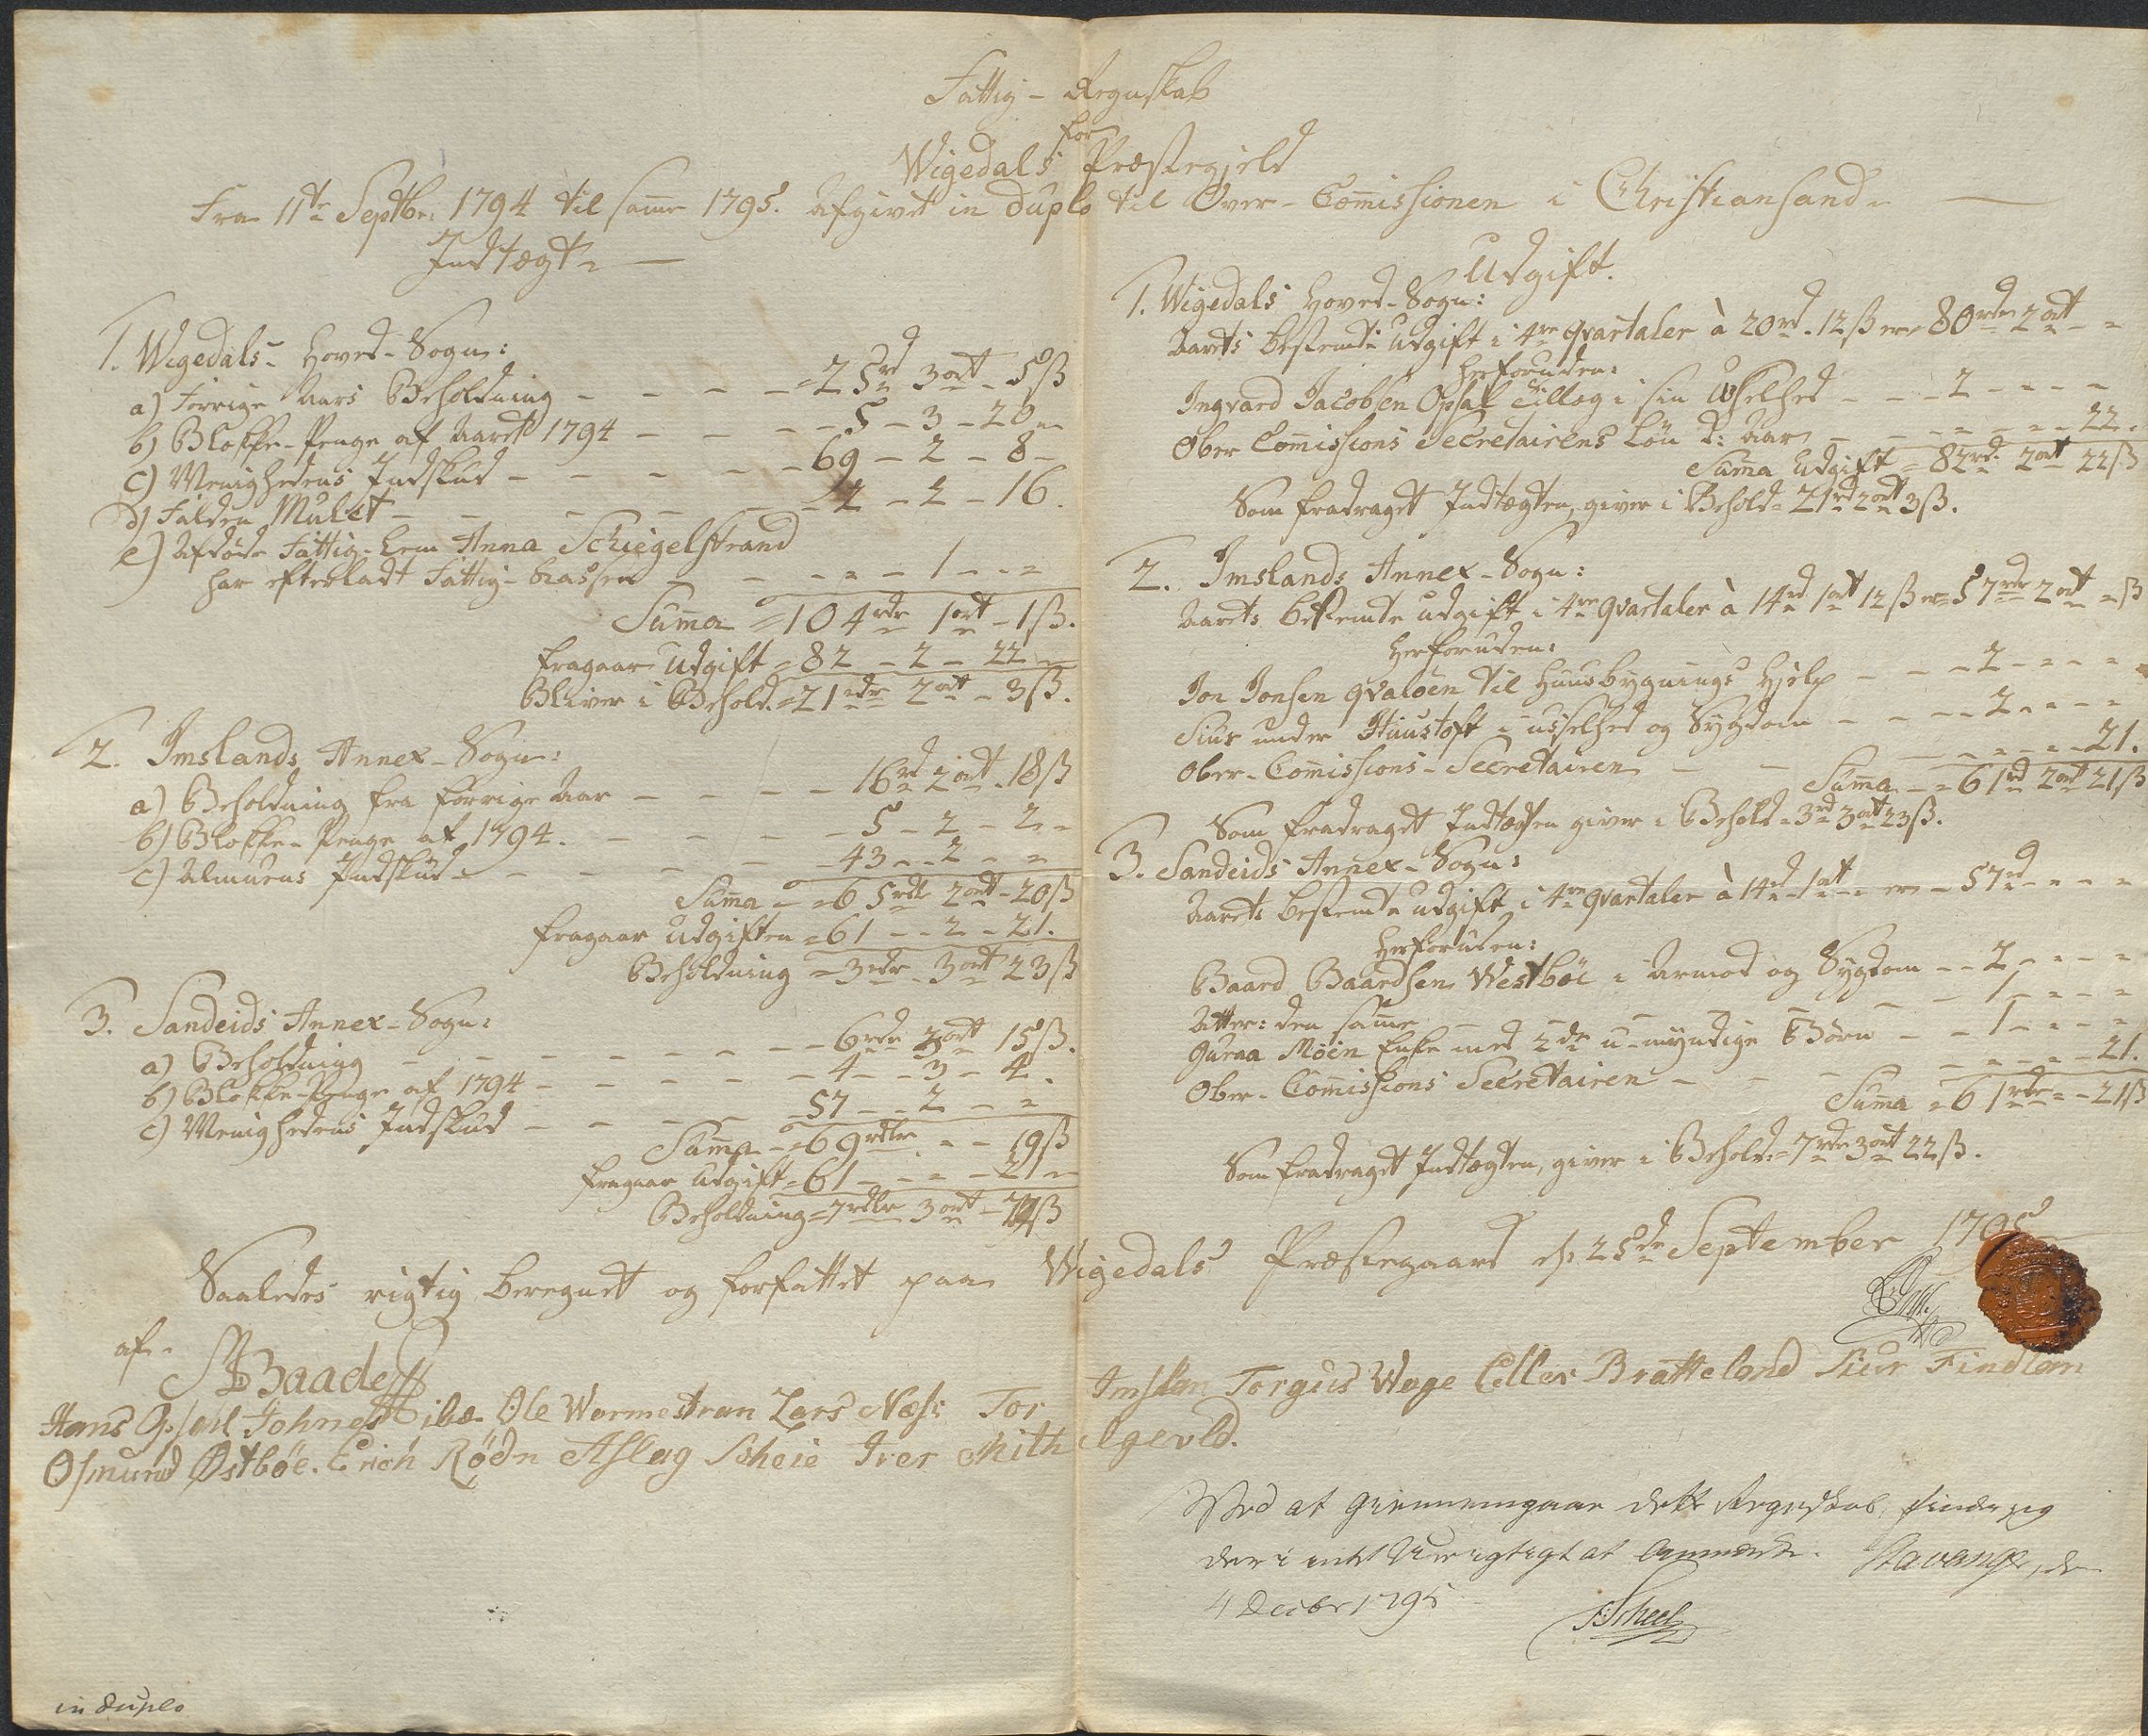 Fattig-Regnskab
for
Wigedals Præstegield
Fra 11te Septbr: 1794 til samme 1795. Afgivet in duplo til Over-Comissionen i Christiansand.
Indtægt.
1. Wigedals Hoved-Sogn:
a) Forrige Aars Beholdning - - - - 25rd 3ort 5ß
b) Blokke-Penge af Aaret 1794 - - - - 5 - 3 - 20
c) Menighedens Indskud - - - - 69 - 2 - 8
d) Falden Mulct - - - - 2 - 2 - 16.
e) Afdøde Fattig-Lem Anna Schiegelstrand
har efterladt Fattig-Cassen - - - - 1 - -
Suma = 104rdr 1ort - 1ß.
fragaar Udgift = 82 - 2 - 22
Bliver i Behold. = 21rdr 2ort - 3ß.
2. Imslands Annex-Sogn:
a) Beholdning fra forrige Aar - - - - 16rd 2ort 18ß
b) Blokke-Penge af 1794. - - - - 5 - 2 - 2
c) Almuens Indskud - - - - 43 - 2 - -
Suma - = 65rdr 2ort - 20ß
fragaar Udgiften = 61 - 2 - 21.
Beholdning = 3rdr 3ort 23ß
3. Sandeids Annex-Sogn:
a) Beholdning - - - - 6rdr 3ort 15ß.
b) Blokke-Penge af 1794 - - - - 4 - 3 - 4.
c) Menighedens Indskud - - - - 57 - 2 - -
Suma - = 69rdlr - - 19ß
fragaar Udgift = 61 - - - 21
Beholdning = 7rdlr 3ort - 22ß
Udgift.
1. Wigedals Hoved-Sogn:
Aarets bestemte Udgift i 4re Qvartaler à 20rd. 12ß er 80rdr 2ort -
herforuden:
Ingvard Jacobsen Opsal Tillæg i sin Uselhed - - - 2 - - -
Ober Comissions Secretairens Løn d: Aar - - - - 22.
Suma Udgift = 82rd: 2ort 22ß
Som fradraget Indtægten, giver i Behold = 21rd 2ort 3ß.
2. Imslands Annex-Sogn:
Aarets bestemte Udgift i 4re Qvartaler à 14rd 1ort 12ß er 57rdr 2ort - ß
herforuden:
Jon Jonsen Qvaløen til Huusbygnings Hjelp - - - 2 - - -
Siur under Huustoft i usselhed og Sygdom - - - 2 - - -
Ober-Comissions-Secretairen - - - - 21.
Suma - = 61rd 2ort 21ß
Som fradraget Indtægten giver i Behold = 3rd 3ort 23ß.
3. Sandeids Annex-Sogn:
Aarets bestemte Udgift i 4re Qvartaler à 14rd 1ort - er - 57rd - - -
herforuden:
Baard Baardsen Westbøe i Armod og Sygdom - - 2 - - -
Atter: den samme - - - - 1 - - -
Guraa Möen Enke med 2de u-myndige Børn - - 1 - - -
Ober-Comissions Secretairen - - - - 21.
Suma = 61rdr = - 21ß
Som fradraget Indtægten, giver i Behold = 7rdr 3ort 22ß.
Saaledes rigtig beregnet og forfattet paa Wigedals Præstegaard d. 25de September 1795
af
Baade
Hans Opsahl Johnes Ole Warmestran Lars Næss Tor Imslan Torgius Wage Eller Bratteland Siur Findlan
Osmund Østbøe. Erich Rødn Aslag Scheie Iver Mithelgevld.
Ved at giennemgaae dette Regnskab, finder jeg
der i intet Urigtigt at bemærke. Stavanger, den
4 Decibr 1795
Scheel
in duplo